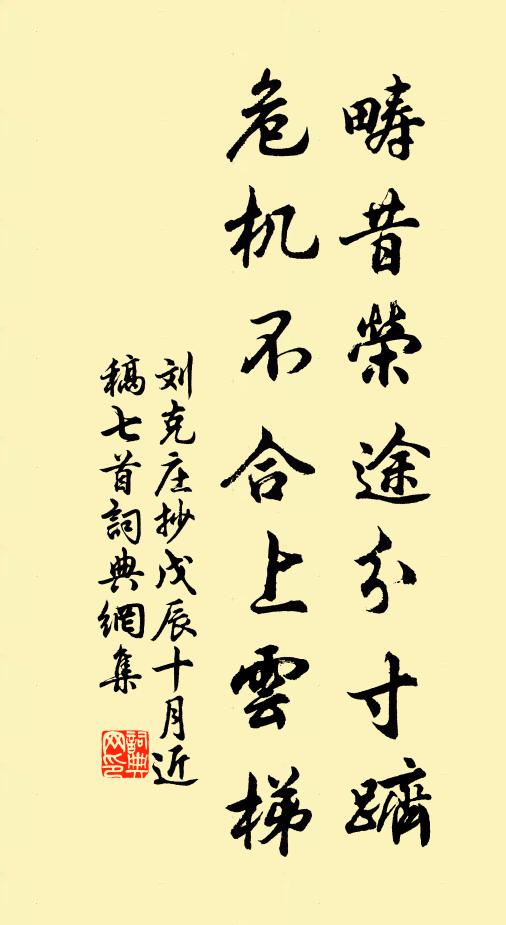 畴昔榮途分寸躋
危机不合上雲梯
刘克庄抄戊辰十月近
稿七首詞典網集
詞典
网印